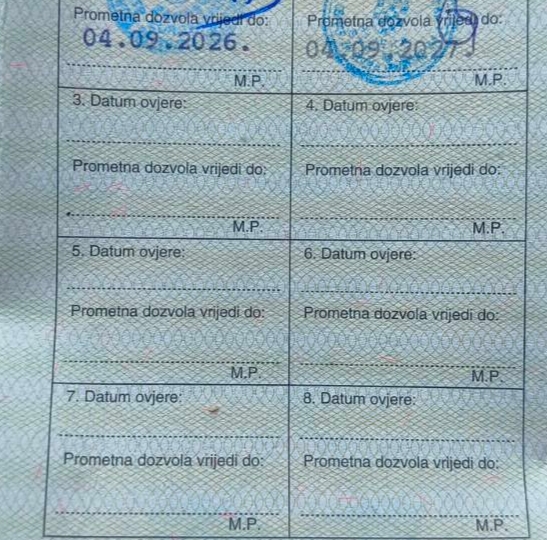 Prometna dozvola vrijedi do: Prometna dozvola vrijedi do:
04.09.2026. 04.09.2027.
M.P. M.P.
3. Datum ovjere: 4. Datum ovjere:
Prometna dozvola vrijedi do: Prometna dozvola vrijedi do:
M.P. M.P.
5. Datum ovjere: 6. Datum ovjere:
Prometna dozvola vrijedi do: Prometna dozvola vrijedi do:
M.P. M.P.
7. Datum ovjere: 8. Datum ovjere:
Prometna dozvola vrijedi do: Prometna dozvola vrijedi do:
M.P. M.P.